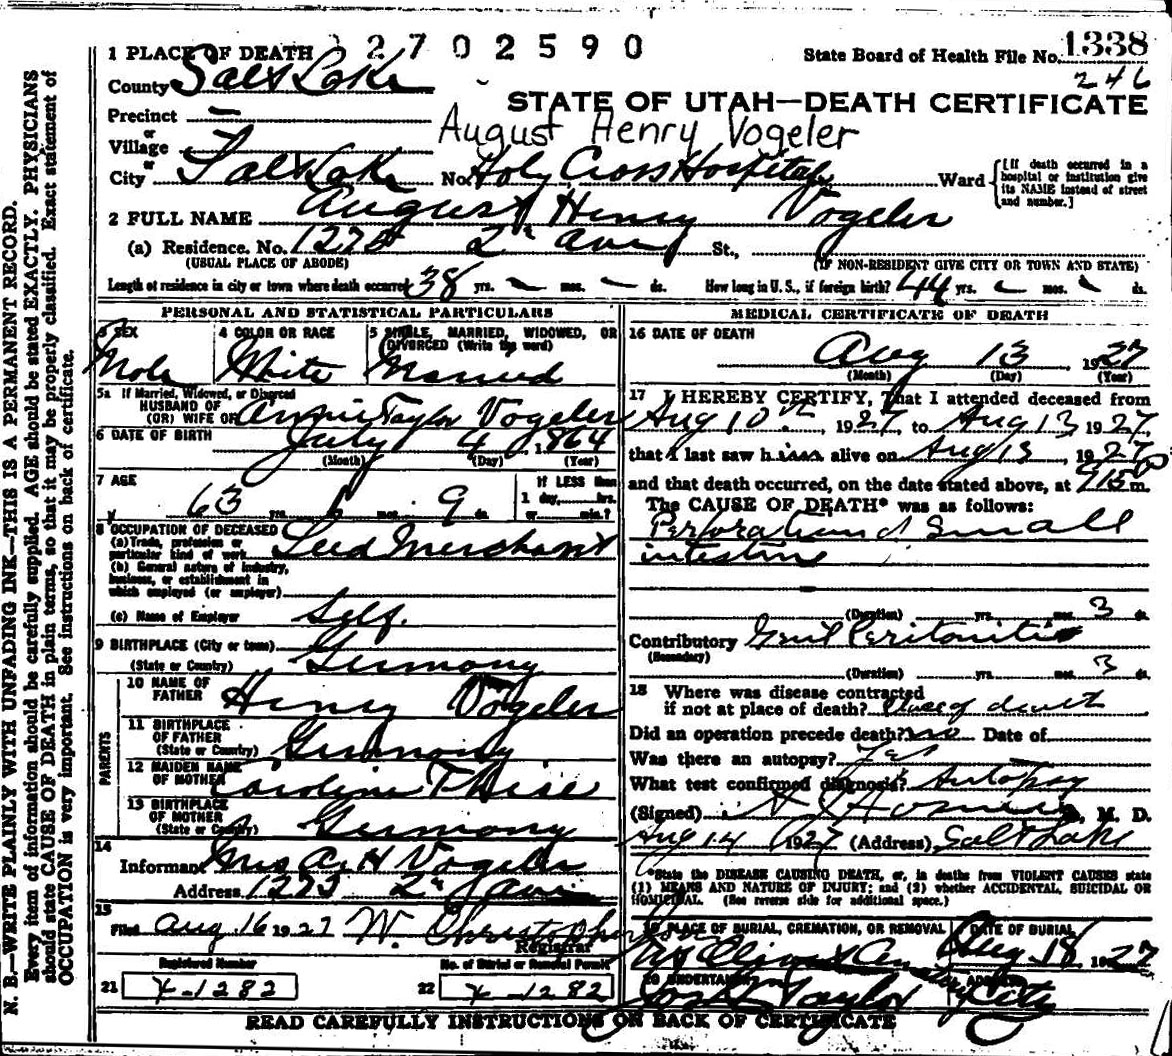 1 PLACE OF DEATH 2 7 0 2 5 9 0
State Board of Health File No. 1338
246
County Salt Lake
STATE OF UTAH—DEATH CERTIFICATE
Precinct —
August Henry Vogeler
or
Village
or
City Salt Lake No. Holy Cross Hospital Ward
[If death occurred in a hospital or institution give its NAME instead of street and number.]
2 FULL NAME August Henry Vogeler
(a) Residence. No. 2nd Ave St.,
(USUAL PLACE OF ABODE) (IF NON-RESIDENT GIVE CITY OR TOWN AND STATE)
Length of residence in city or town where death occurred 38 yrs. — mos. — ds. How long in U. S., if foreign birth? 44 yrs. — mos. — ds.
PERSONAL AND STATISTICAL PARTICULARS
3 SEX
Male
4 COLOR OR RACE
White
5 SINGLE, MARRIED, WIDOWED, OR DIVORCED (Write the word)
Married
5a If Married, Widowed, or Divorced
HUSBAND OF
(OR) WIFE OF Annie Taylor Vogeler
6 DATE OF BIRTH July 4 1864
(Month) (Day) (Year)
7 AGE
63 yrs. 1 mos. 9 ds.
If LESS than
1 day, hrs.
or min.?
8 OCCUPATION OF DECEASED
(a) Trade, profession or
particular kind of work Seed Merchant
(b) General nature of industry,
business, or establishment in
which employed (or employer)
(c) Name of Employer Self.
9 BIRTHPLACE (City or town)
(State or Country) Germany
PARENTS
10 NAME OF
FATHER Henry Vogeler
11 BIRTHPLACE
OF FATHER
(State or Country) Germany
12 MAIDEN NAME
OF MOTHER Caroline Thise
13 BIRTHPLACE
OF MOTHER
(State or Country) Germany
14
Informant Mrs A H Vogeler
Address 2nd Ave
15
Filed Aug 16 1927 W. Christopherson
Registrar
Registered Number
21 X-1282
No. of Burial or Removal Permit
22 X-1282
MEDICAL CERTIFICATE OF DEATH
16 DATE OF DEATH
Aug 13 1927
(Month) (Day) (Year)
17 I HEREBY CERTIFY, That I attended deceased from
Aug 10th, 1927, to Aug 13, 1927,
that I last saw him alive on Aug 13, 1927
and that death occurred, on the date stated above, at 915 P m.
The CAUSE OF DEATH* was as follows:
Perforation of Small
intestine
(Duration) yrs. mos. 3 ds.
Contributory Genl Peritonitis
(Secondary)
(Duration) yrs. mos. 3 ds.
18 Where was disease contracted
if not at place of death? Place of death
Did an operation precede death? no Date of
Was there an autopsy? Yes
What test confirmed diagnosis? Autopsy
(Signed) , M. D.
Aug 14 1927 (Address) Salt Lake
*State the DISEASE CAUSING DEATH, or, in deaths from VIOLENT CAUSES state
(1) MEANS AND NATURE OF INJURY; and (2) whether ACCIDENTAL, SUICIDAL OR
HOMICIDAL. (See reverse side for additional space.)
19 PLACE OF BURIAL, CREMATION, OR REMOVAL
Mt Olivet
DATE OF BURIAL
Aug 18, 1927
20 UNDERTAKER
Taylor
ADDRESS
City
READ CAREFULLY INSTRUCTIONS ON BACK OF CERTIFICATE
N. B.—WRITE PLAINLY WITH UNFADING INK—THIS IS A PERMANENT RECORD.
Every item of information should be carefully supplied. AGE should be stated EXACTLY. PHYSICIANS
should state CAUSE OF DEATH in plain terms, so that it may be properly classified. Exact statement of
OCCUPATION is very important. See instructions on back of certificate.